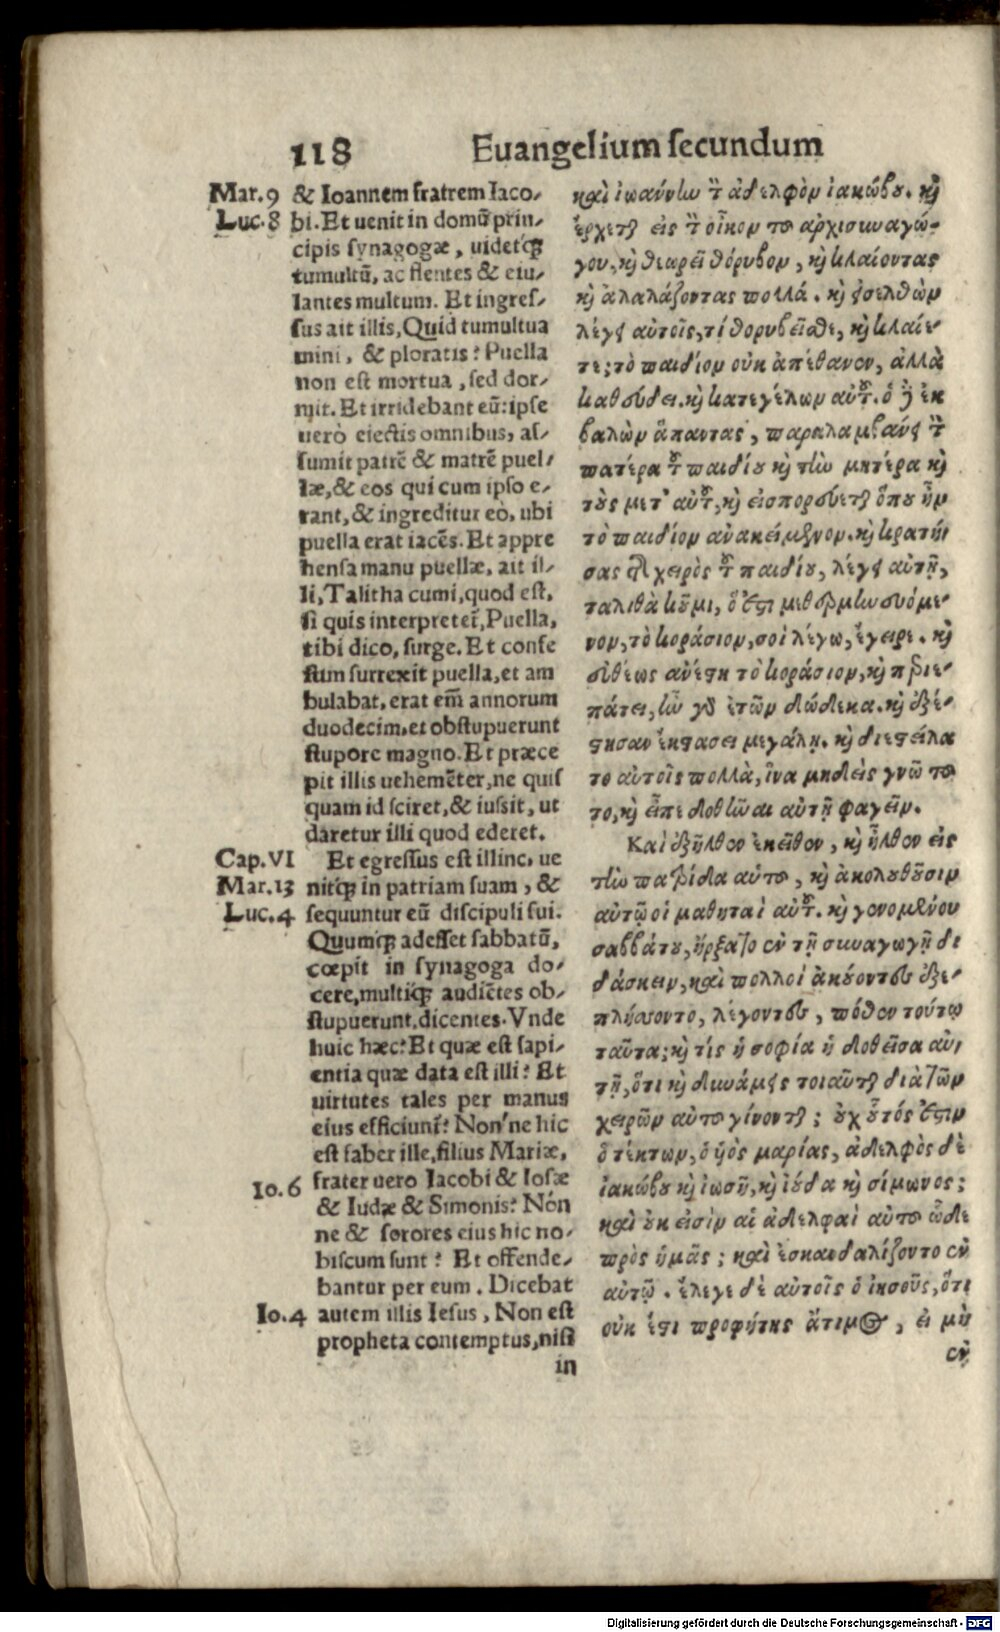 118 Euangelium secundum
Mar.9
Luc.8
& Ioannem fratrem Iaco-
bi. Et uenit in domū prin-
cipis synagogæ, uidetq́ꝫ
tumultū, ac flentes & eiu-
lantes multum. Et ingres-
sus ait illis, Quid tumultua
mini, & ploratis? Puella
non est mortua, sed dor-
mit. Et irridebant eū: ipse
uerò eiectis omnibus, as-
sumit patrē & matrē puel-
læ, & eos qui cum ipso e-
rant, & ingreditur eò, ubi
puella erat iacēs. Et appre
hensa manu puellæ, ait il-
li, Talitha cumi, quod est,
si quis interpretet̄, Puella,
tibi dico, surge. Et confe
stim surrexit puella, et am
bulabat, erat em̄ annorum
duodecim, et obstupuerunt
stupore magno. Et præce
pit illis uehemēter, ne quis
quam id sciret, & iussit, ut
daretur illi quod ederet.
Cap.VI
Mar.13
Luc.4
Et egressus est illinc, ue
nitq́ꝫ in patriam suam, &
sequuntur eū discipuli sui.
Quumq́ꝫ adesset sabbatū,
cœpit in synagoga do-
cere, multiq́ꝫ audiētes ob-
stupuerunt, dicentes. Vnde
huic hæc? Et quæ est sapi-
entia quæ data est illi? Et
uirtutes tales per manus
eius efficiunt̄? Non'ne hic
est faber ille, filius Mariæ,
Io.6
frater uero Iacobi & Iosæ
& Iudæ & Simonis? Nón
ne & sorores eius hic no-
biscum sunt? Et offende-
bantur per eum. Dicebat
Io.4
autem illis Iesus, Non est
propheta contemptus, nisi
in
καὶ ἰωάννην τ̀ ἀδελφὸν ἰακώβου. καὶ
ἔρχεται εἰς τ̀ οἶκον τοῦ ἀρχισυναγώ-
γου, καὶ θεωρεῖ θόρυβον, καὶ κλαίοντας
καὶ ἀλαλάζοντας πολλά. καὶ εἰσελθὼν
λέγει αὐτοῖς, τί θορυβεῖσθε, καὶ κλαίε-
τε; τὸ παιδίον οὐκ ἀπέθανεν, ἀλλὰ
καθεύδει. καὶ κατεγέλων αὐτοῦ. ὁ δὲ ἐκ
βαλὼν ἅπαντας, παραλαμβάνει τ̀
πατέρα τοῦ παιδίου καὶ τὴν μητέρα καὶ
τοὺς μετ' αὐτοῦ, καὶ εἰσπορεύεται ὅπου ἦν
τὸ παιδίον ἀνακείμενον. καὶ κρατή-
σας τῆς χειρὸς τοῦ παιδίου, λέγει αὐτῇ,
ταλιθὰ κοῦμι, ὅ ἐστι μεθερμηνευόμε-
νον, τὸ κοράσιον, σοὶ λέγω, ἔγειρε. καὶ
εὐθέως ἀνέστη τὸ κοράσιον, καὶ περιε-
πάτει, ἦν γὰρ ἐτῶν δώδεκα. καὶ ἐξέ-
στησαν ἐκστάσει μεγάλῃ. καὶ διεστείλα
το αὐτοῖς πολλὰ, ἵνα μηδεὶς γνῷ τοῦ
το, καὶ εἶπε δοθῆναι αὐτῇ φαγεῖν.
Καὶ ἐξῆλθεν ἐκεῖθεν, καὶ ἦλθεν εἰς
τὴν πατρίδα αὐτοῦ, καὶ ἀκολουθοῦσιν
αὐτῷ οἱ μαθηταὶ αὐτοῦ. καὶ γενομένου
σαββάτου, ἤρξατο ἐν τῇ συναγωγῇ δι
δάσκειν, καὶ πολλοὶ ἀκούοντες ἐξε-
πλήσσοντο, λέγοντες, πόθεν τούτῳ
ταῦτα; καὶ τίς ἡ σοφία ἡ δοθεῖσα αὐ-
τῇ, ὅτι καὶ δυνάμεις τοιαῦται διὰ τῶν
χειρῶν αὐτοῦ γίνονται; οὐχ οὗτός ἐστιν
ὁ τέκτων, ὁ υἱὸς μαρίας, ἀδελφὸς δὲ
ἰακώβου καὶ ἰωσῆ, καὶ ἰούδα καὶ σίμωνος;
καὶ οὐκ εἰσὶν αἱ ἀδελφαὶ αὐτοῦ ὧδε
πρὸς ἡμᾶς; καὶ ἐσκανδαλίζοντο ἐν
αὐτῷ. ἔλεγε δὲ αὐτοῖς ὁ ἰησοῦς, ὅτι
οὐκ ἔστι προφήτης ἄτιμος, εἰ μὴ
ἐν
Digitalisierung gefördert durch die Deutsche Forschungsgemeinschaft - DFG